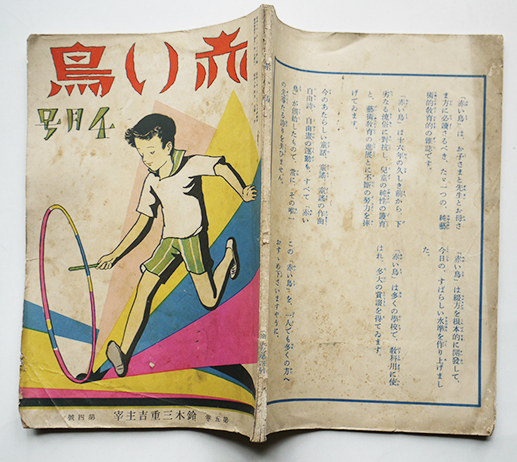 赤い鳥
鈴木三重吉主宰
第四號
「赤い鳥」は、お子さまと先生とお母さ
ま方に必讀さるべき、たゞ一つの、純藝
術的教育的の雜誌です。
「赤い鳥」は十六年の久しき前から、下
劣なる俗に對抗し、兒童の純性の護育
と、藝術教育の進展とに不斷の努力を捧
げてゐます。
今のあたらしい童話、童謠、童謠の作曲
自由詩、自由畫の運動も、すべて「赤い
鳥」が創始したもので、常に、この唯一
「赤い鳥」は綴方を根本的に開發して、
今日の、すばらしい水準を作り上げまし
た。
「赤い鳥」は多くの學校で、教科用に使
はれ、多大の賞讚を得てゐます。
この「赤い鳥」を、一人でも多くの方へ
おすゝめ下さいますやうに。